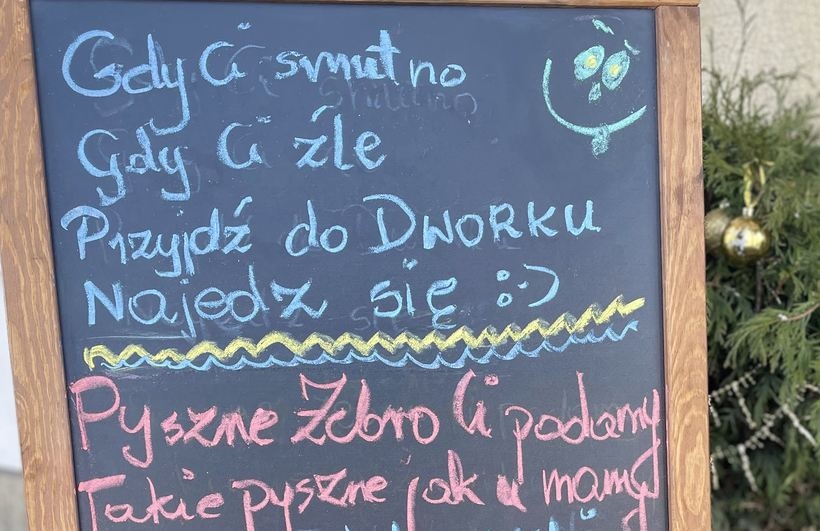 Gdy Ci smutno
Gdy Ci źle
Przyjdź do DWORKU
Najedz się :-)
Pyszne Żebro Ci podamy
Takie pyszne jak u mamy